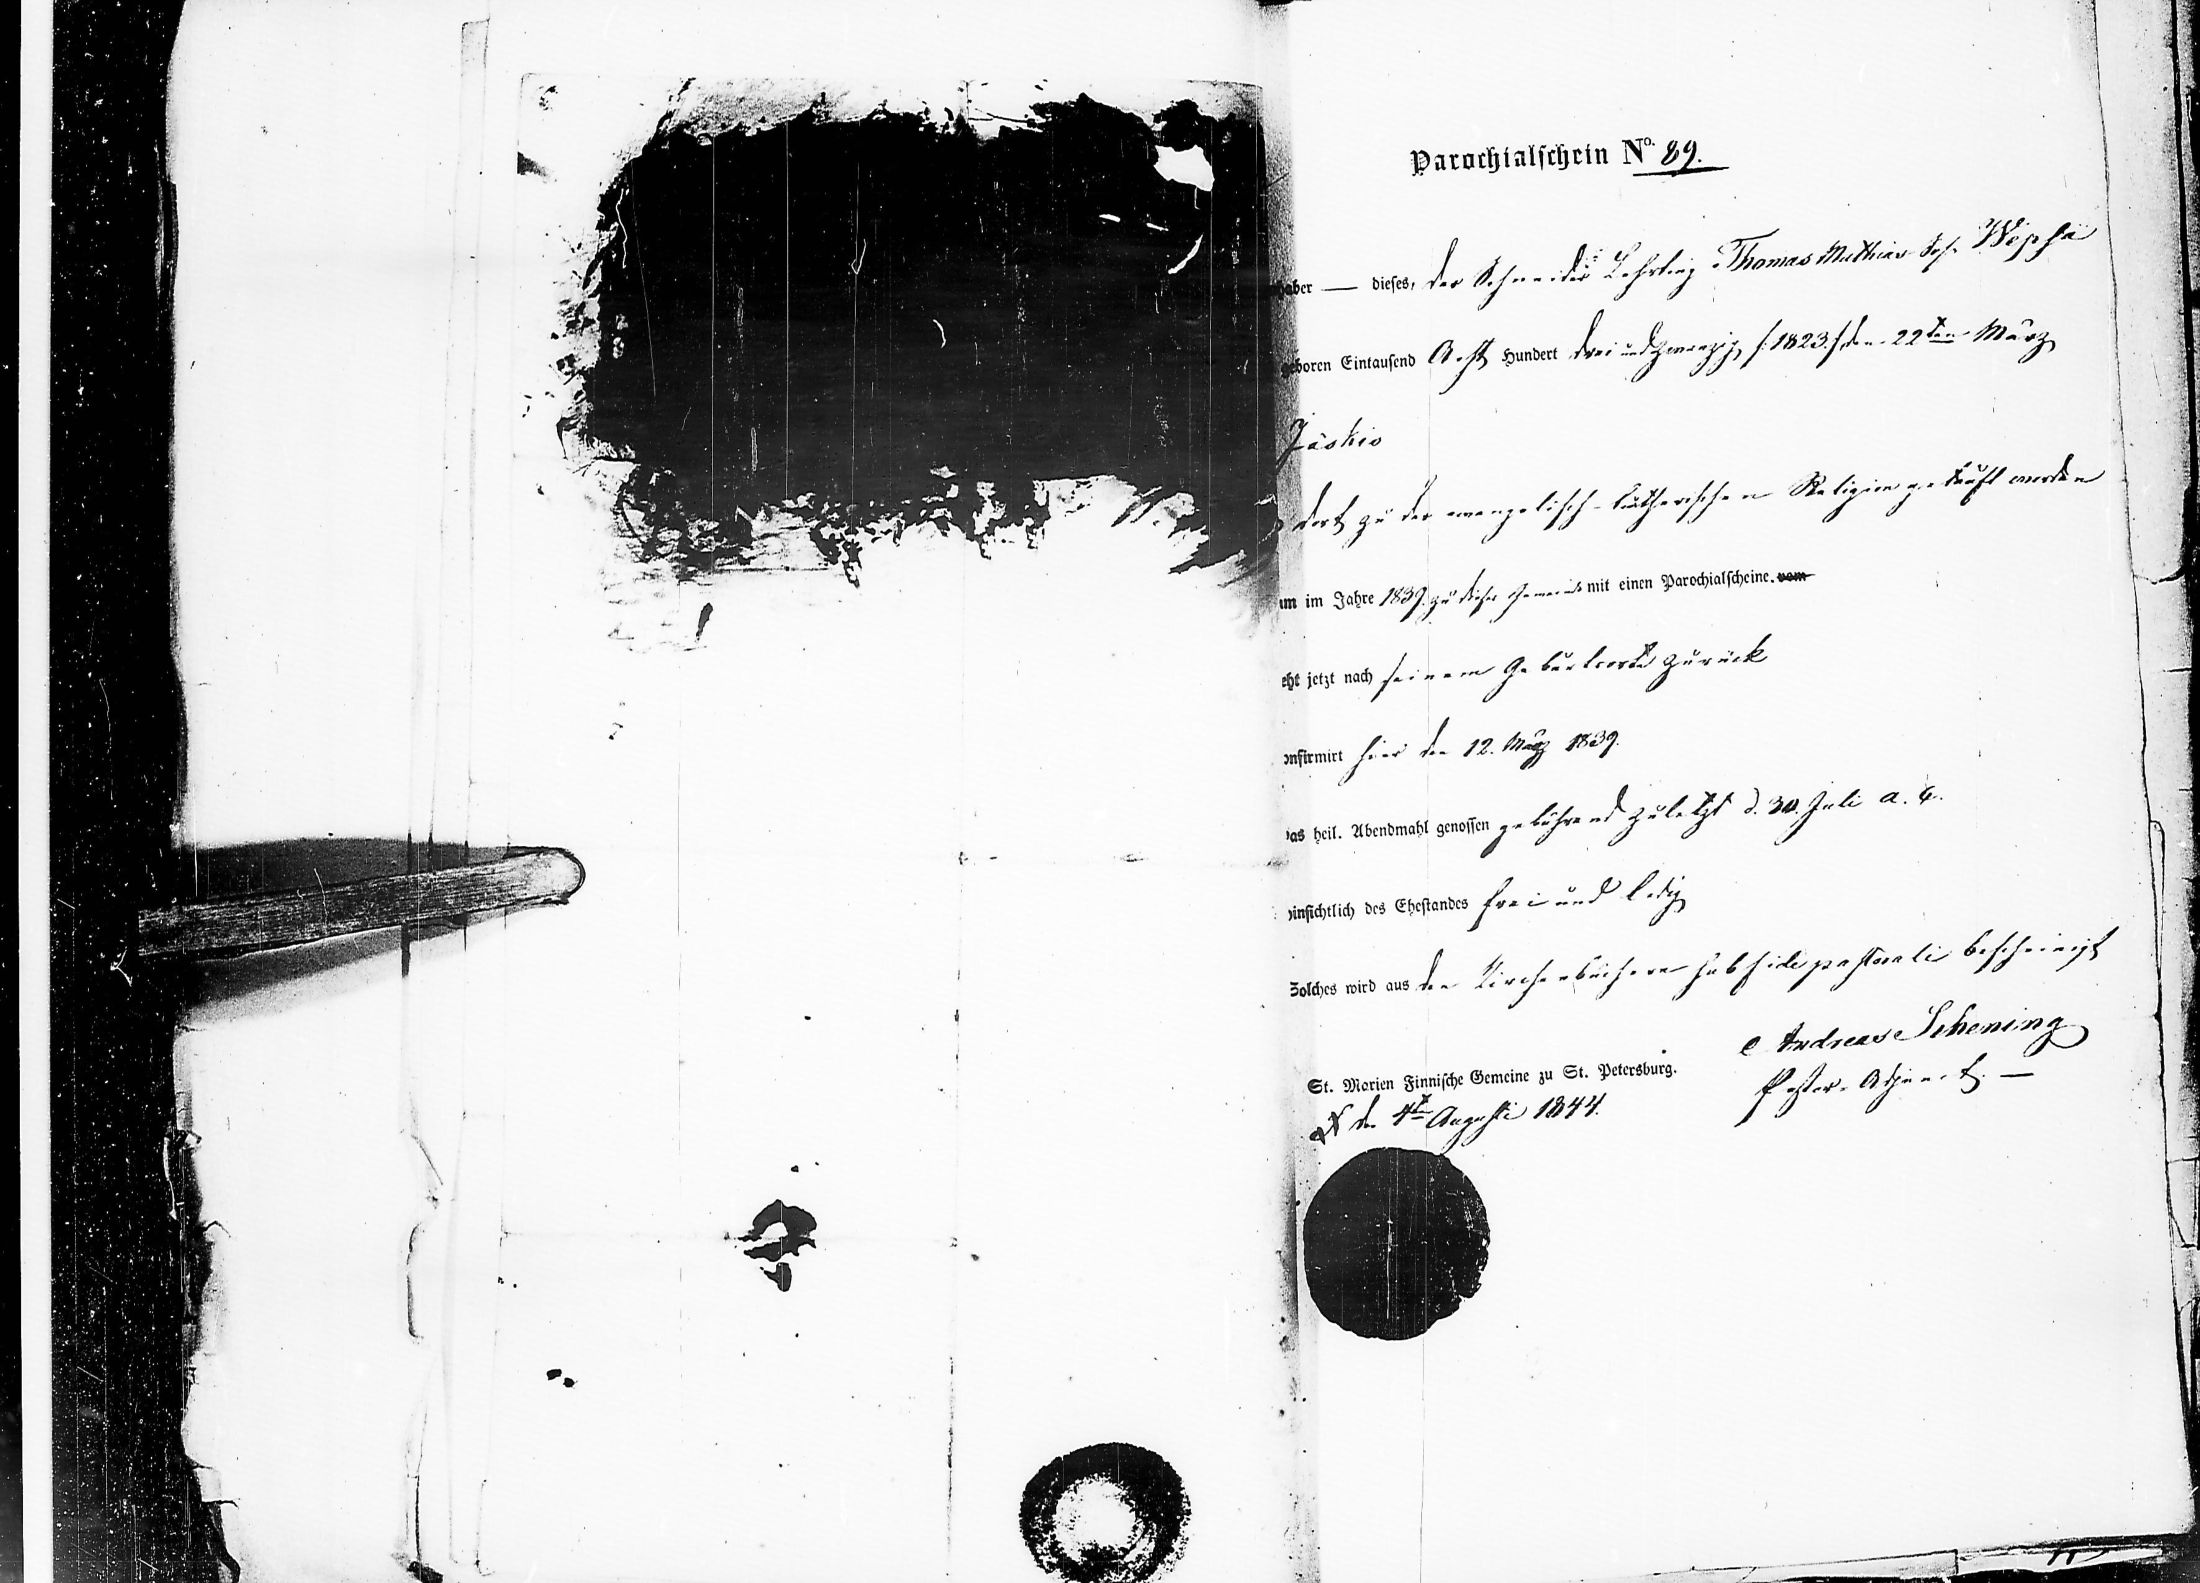 Parochialschein No. 89.
haber — dieses, der Schneider Lehrling Thomas Mathias Sohn Wepsä
geboren Eintausend Acht Hundert drei und zwanzig /:1823:/ den 22ten März
Jäskis
dort zu der evangelisch-lutherischen Religion getauft worden
am im Jahre 1839. zu dieser Gemeinde mit einen Parochialscheine. vom
eht jetzt nach seinem Geburtsorte zurück
onfirmirt hier den 12. März 1839.
das heil. Abendmahl genossen gebührend zuletzt d. 30. Juli a. c.
hinsichtlich des Ehestandes frei und ledig
Solches wird aus den Kirchenbüchern sub fide pastorali bescheinigt
Andreas Schening
St. Marien Finnische Gemeine zu St. Petersburg.
Pastor-Adjunct. —
den 4ten Augusti 1844.